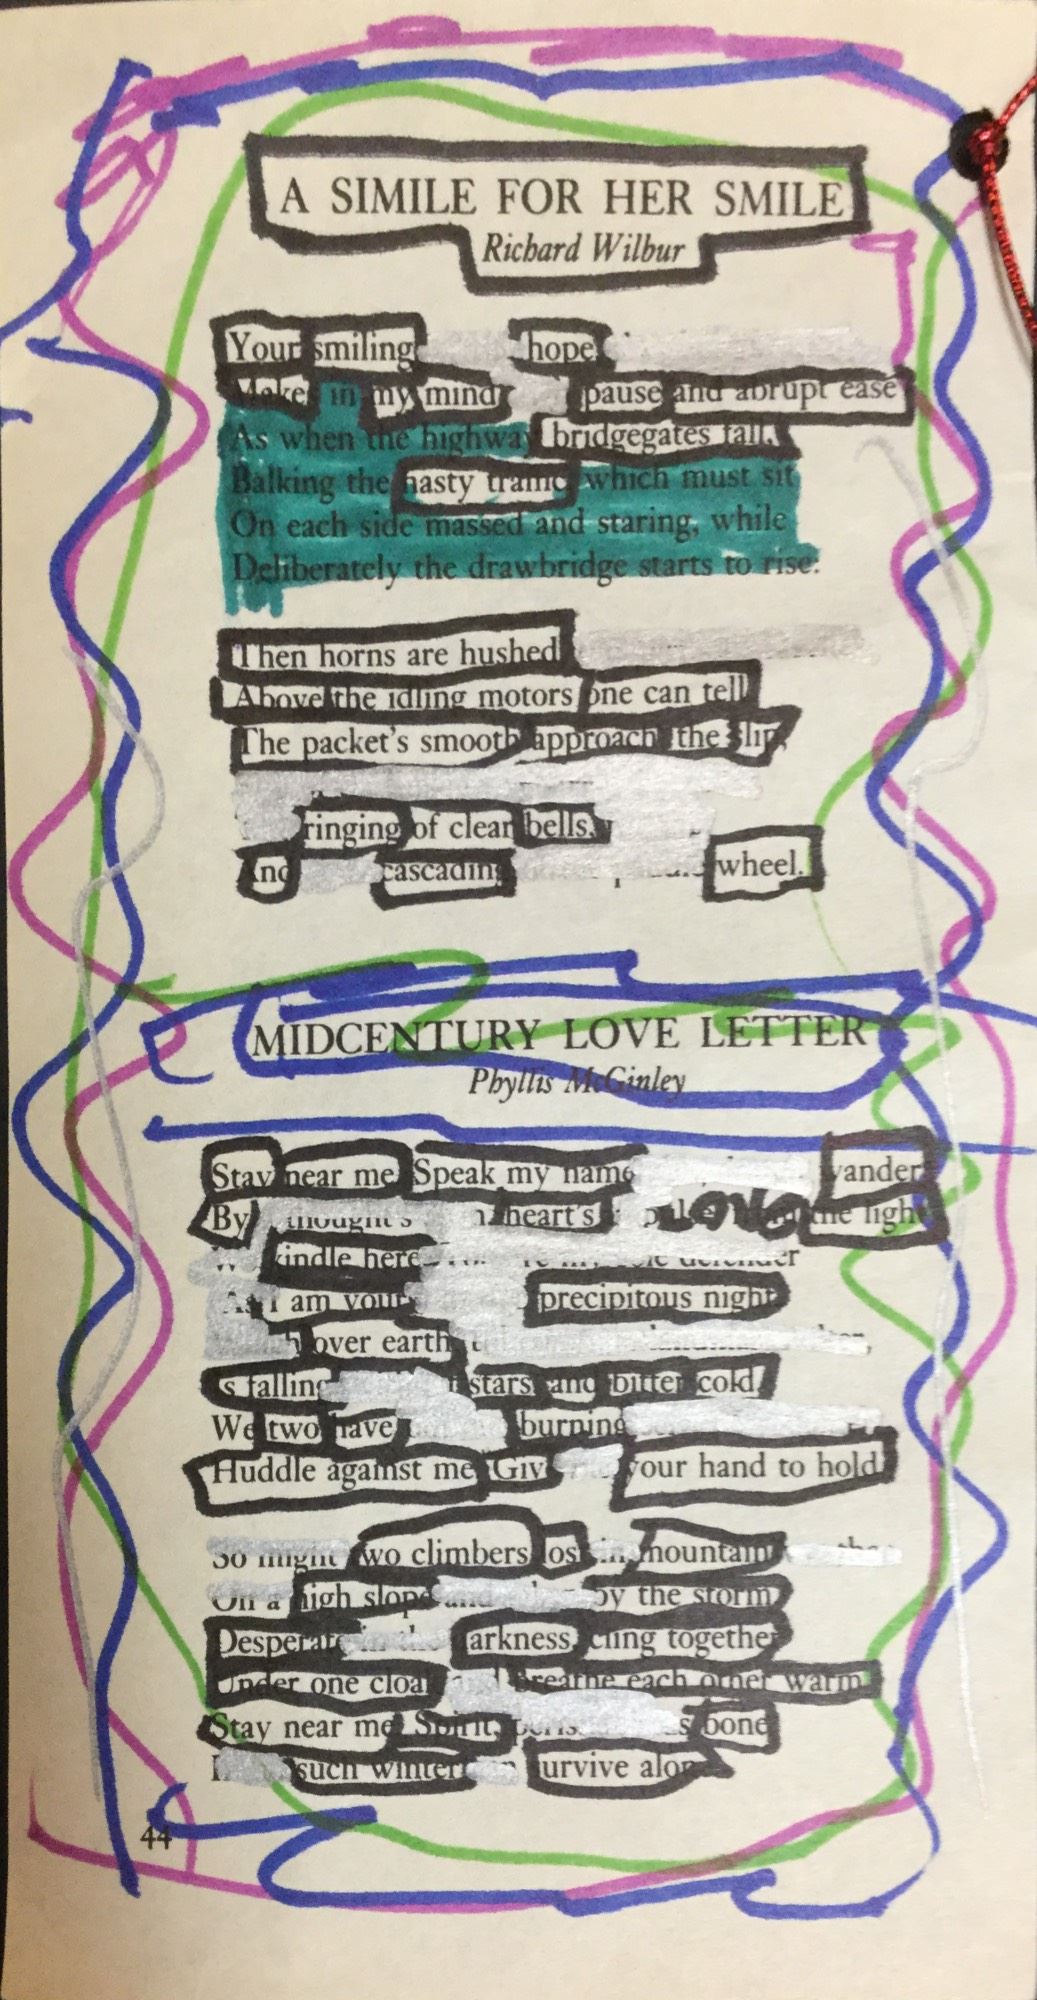 A SIMILE FOR HER SMILE
Richard Wilbur
Your smiling hope
Makes in my mind pause and abrupt ease
As when the highway bridgegates fall,
Balking the hasty traffic which must sit
On each side massed and staring, while
Deliberately the drawbridge starts to rise:
Then horns are hushed
Above the idling motors one can tell
The packet's smooth approach the slip,
ringing of clear bells,
And cascading wheel.
MIDCENTURY LOVE LETTER
Phyllis McGinley
Stay near me Speak my name wander
By thought's heart's LOVE the light
kindle here defender
As I am your precipitous night
over earth
s falling stars and bitter cold,
We two have burning
Huddle against me Giv your hand to hold
So might two climbers lost in mountain the
On a high slope and by the storm
Desperate in the arkness, cling together
Under one cloak and breathe each other warm
Stay near me Spirit, bone
such winter survive alone
44